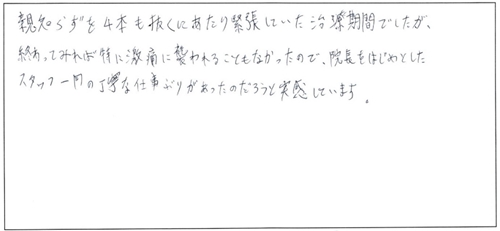 親知らずを4本も抜くにあたり緊張していた治療期間でしたが、
終わってみれば特に激痛に襲われることもなかったので、院長をはじめとした
スタッフ一同の丁寧な仕事ぶりがあったのだろうと実感しています。